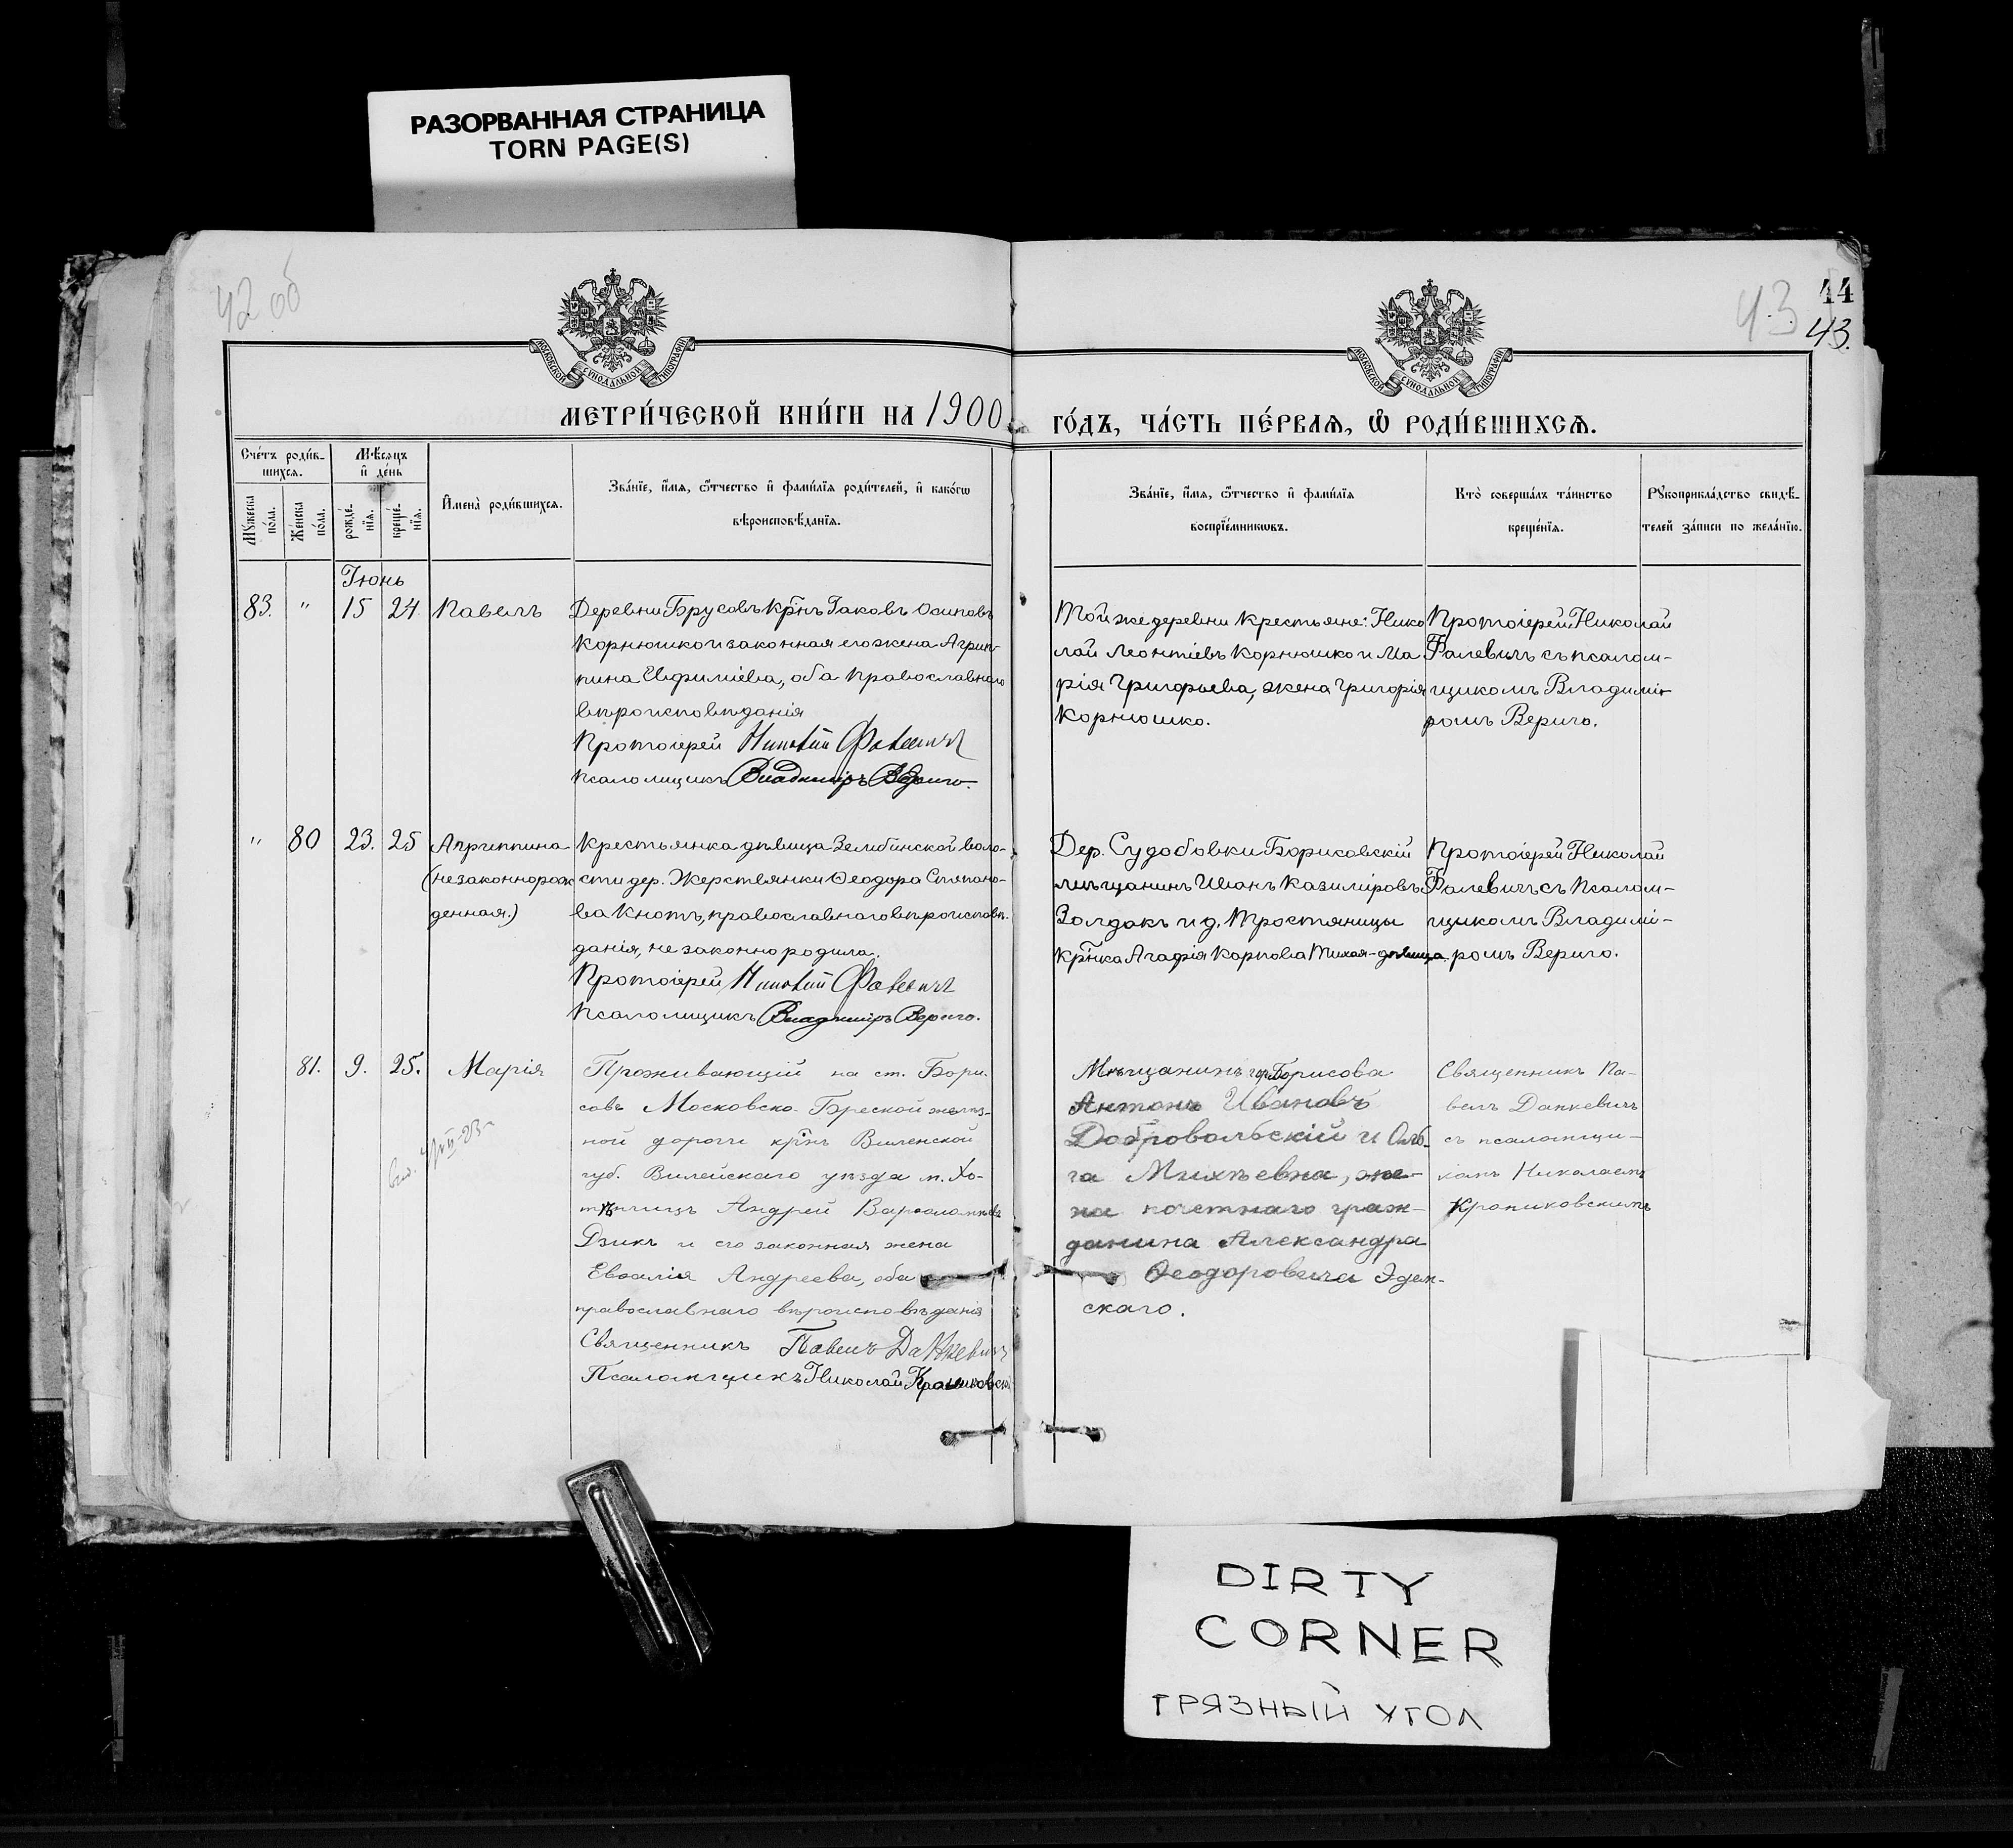 РАЗОРВАННАЯ СТРАНИЦА
TORN PAGE(S)
42 об
43
44
43.
МОСКОВСКОЙ СУНОДАЛЬНОЙ ТИПОГРАФІИ
МОСКОВСКОЙ СУНОДАЛЬНОЙ ТИПОГРАФІИ
МЕТРИ́ЧЕСКОЙ КНИ́ГИ НА 1900
ГО́ДЪ, ЧА́СТЬ ПЕ́РВАЯ, Ѽ РОДИ́ВШИХСЯ.
Сче́тъ роди́в-
шихся.
Мѣ́сяцъ
и҆ де́нь
Мꙋ́жеска
по́ла.
Же́нска
по́ла.
рожде́-
нїѧ.
креще́-
нїѧ.
И҆мена̀ роди́вшихсѧ.
Зва́нїе, и҆́мѧ, ѻ҆́тчество и҆ фами́лїѧ роди́телей, и҆ како́гѡ
вѣроисповѣ́данїѧ.
Зва́нїе, и҆́мѧ, ѻ҆́тчество и҆ фами́лїѧ
воспрїе́мникѡвъ.
Кто̀ соверша́лъ та́инство
креще́нїѧ.
Рꙋкоприкла́дство свидѣ́-
телей за́писи по жела́нїю.
Іюнь
83. " 15 24 Павелъ
Деревни Брусовъ крнъ Іаковъ Осиповъ
Корнюшко и законная его жена Агрип-
пина Евфиміева, оба православнаго
вѣроисповѣданія
Протоіерей Николай Фалевичъ
Псаломщикъ Владиміръ Вериго.
Той же деревни крестьяне: Нико
лай Леонтіевъ Корнюшко и Ма
рія Григорьева, жена Григорія
Корнюшко.
Протоіерей Николай
Фалевичъ съ псалом-
щикомъ Владимі-
ромъ Вериго.
" 80 23. 25 Агриппина
(незаконнорож
денная.)
Крестьянка дѣвица Зембинской воло-
сти дер. Жерствянки Ѳеодора Степано-
ва Кнотъ, православнаго вѣроисповѣ-
данія, незаконно родила.
Протоіерей Николай Фалевичъ
Псаломщикъ Владиміръ Вериго.
Дер. Судобовки Борисовскій
мѣщанинъ Иванъ Казиміровъ
Золдакъ и д. Тростяницы
крнка Агафія Карпова Тихая-дѣвица.
Протоіерей Николай
Фалевичъ съ Псалом-
щикомъ Владимі-
ромъ Вериго.
81. 9. 25. Марія
Проживающій на ст. Бори-
совъ Московско-Брестской желѣз-
ной дороги крнъ Виленской
губ. Вилейскаго уѣзда м. Хо-
тѣнчицъ Андрей Варѳоломѣевъ
Дзикъ и его законная жена
Евѳалія Андреева, оба
православнаго вѣроисповѣданія
Священникъ Павелъ Данкевичъ
Псаломщикъ Николай
Мѣщанинъ гор. Борисова
Антонъ Ивановъ
Добровольскій и Оль-
га Михѣевна, же-
на почетнаго граж-
данина Александра
Ѳеодоровича Эдем-
скаго.
Священникъ Па-
велъ Данкевичъ
съ псаломщи-
комъ Николаемъ
DIRTY
CORNER
ГРЯЗНЫЙ УГОЛ